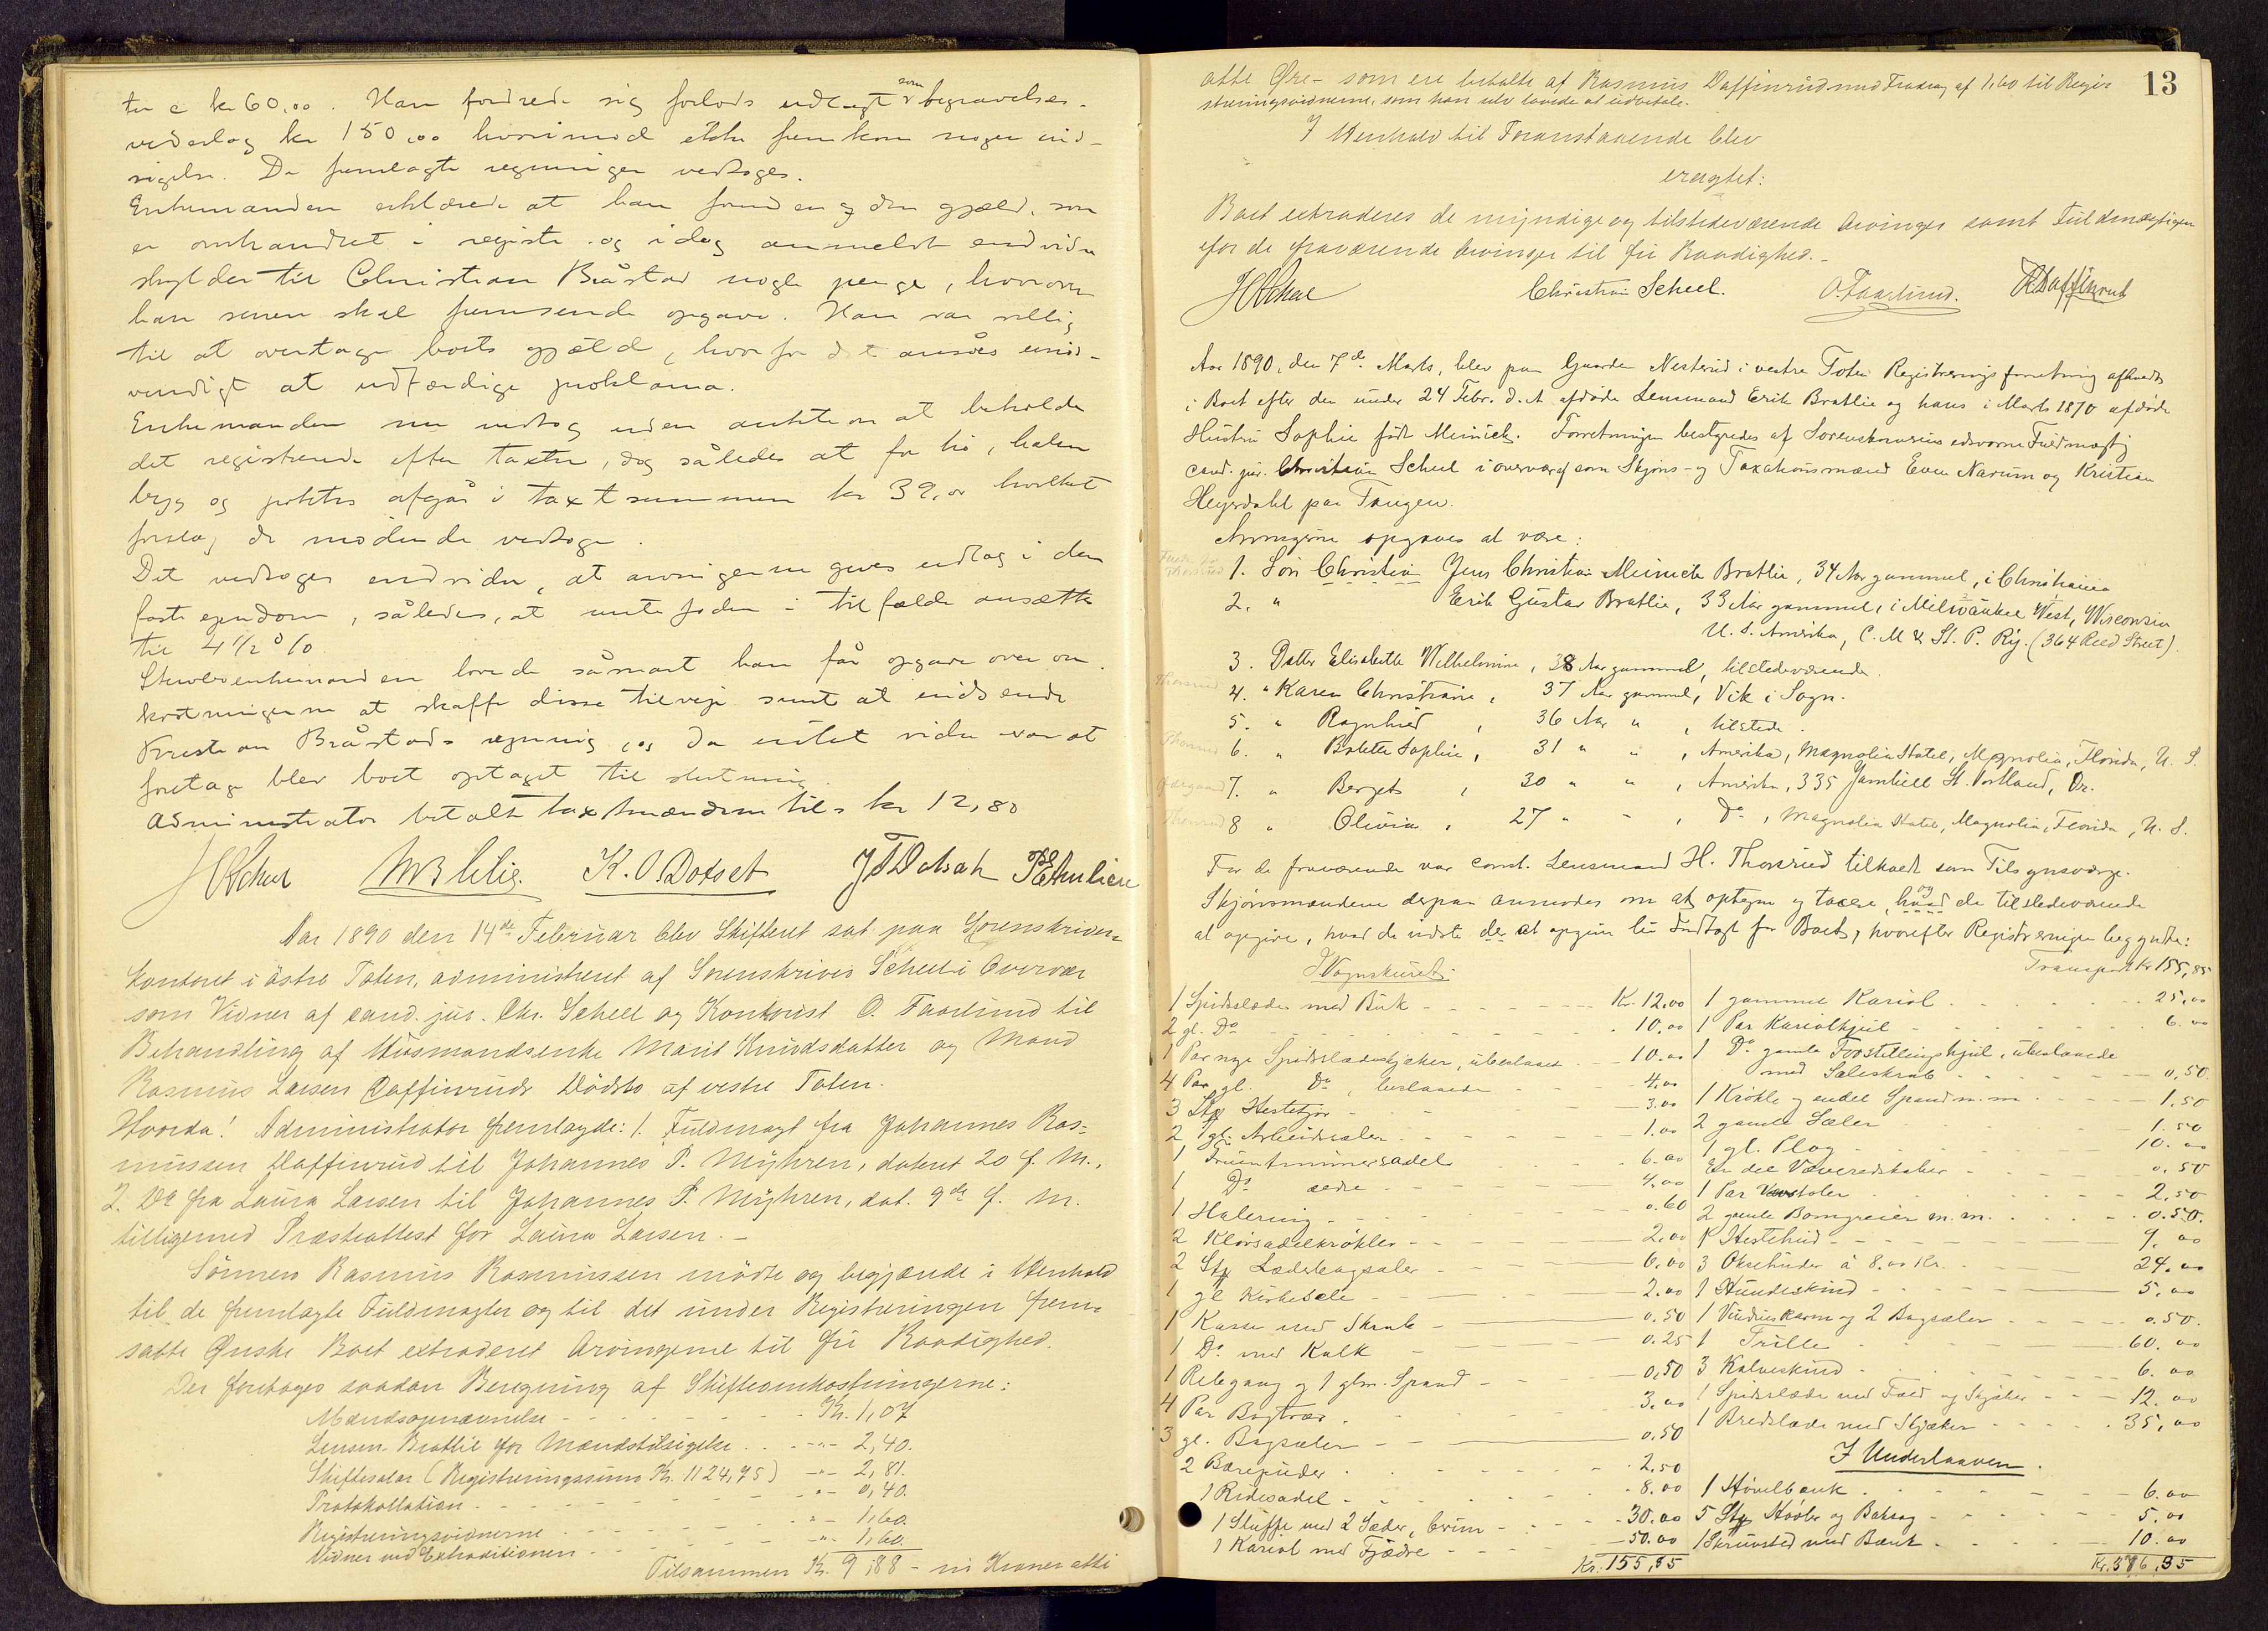 te a kr 60,00. Han fordrede sig forlods udlagt som begravelses-
vederlag kr 150,00 hvorimod ikke fremkom nogen ind-
sigelse. De fremlagte regninger vedtoges.
Enkemanden erklærede at han foruden den gjæld, som
er omhandlet i registr. og idag anmeldt endvidere
skylder til Christian Bråstad nogle penge, hvorom
han senere skal fremsende opgave. Han var villig
til at overtage boets gjæld, hvorfor det ansåes unød-
vendigt at udfærdige proklama.
Enkemanden nu vedtog uden auktion at beholde
det registrerede efter taxten, dog således at for hø, halm
byg og poteter afgår i taxtsummen kr 39,00 hvilket
forslag de mødende vedtoge.
Det vedtoges endvidere, at arvingerne gives udlag i den
faste ejendom, således, at rentefoden i tilfælde ansættes
til 4 1/2 %.
Stervboenkemanden lovede såsnart han får opgave over om-
kostningerne at skaffe disse tilveje samt at indsende
Kristian Bråstads regning, og da intet videre var at
foretage blev boet optaget til slutning.
Administrator betalte taxtmændene tils. kr 12,80
HScheel K. O. Dotset
Aar 1890 den 14de Februar blev Skifteret sat paa Sorenskriver-
kontoret i østre Toten, administreret af Sorenskriver Scheel i Overvær
som Vidner af cand. jur. Chr. Scheel og Kontorist O. Faarlund til
Behandling af Husmandsenke Marit Knudsdatter og Mand
Rasmus Larsen Daffinruds Dødsbo af vestre Toten.
Hvorda! Administrator fremlagde: 1. Fuldmagt fra Johannes Ras-
mussen Daffinrud til Johannes P. Myhren, dateret 20 f. M.,
2. Do fra Laura Larsen til Johannes P. Myhren, dat. 9de f. M.
tilligemed Præsteattest for Laura Larsen.-
Sønnen Rasmus Rasmussen mødte og begjærede i Henhold
til de fremlagte Fuldmagter og til det under Registreringen frem-
satte Ønske Boet extraderet Arvingerne til fri Raadighed.
Der foretoges saadan Beregning af Skifteomkostningerne:
Mændsopnævnelse - Kr. 1,07
Lensm. Bratlie for Mændstilsigelse - 2,40.
Skiftesalær (Registreringssum Kr. 1124,75) -"- 2,81.
Protokollation -"- 0,40.
Registreringsvidnerne -"- 1,60.
Vidner ved Extraditionen -"- 1,60.
Tilsammen Kr. 9,88 - ni Kroner otti
13
otte Øre - som ere betalte af Rasmus Daffinrud med Fradrag af 1,60 til Regis-
streringsvidnerne, som han selv lovede at udbetale.
I Henhold til Foranstaaende blev
eragtet:
Boet extraderes de myndige og tilstedeværende Arvinger samt Fuldmægtigen
for de fraværende Arvinger til fri Raadighed.-
HScheel Christian Scheel. O. Faarlund. R Daffinrud
Aar 1890, den 7de Marts, blev paa Gaarden Nesterud i vestre Toten Registreringsforretning afholdt
i Boet efter den under 24 Febr. d. A. afdøde Lensmand Erik Bratlie og hans i Marts 1870 afdøde
Hustru Sophie født Meinich. Forretningen bestyredes af Sorenskriverens edsvorne Fuldmægtig
cand. jur. Christian Scheel i overvær af som Skjøns- og Taxationsmænd Even Narum og Kristian
Heyerdahl paa Tangen.
Arvingerne opgaves at være:
1. Søn Christian Jens Christian Meinich Bratlie, 34 Aar gammel, i Christiania
2. " Erik Gustav Bratlie, 33 Aar gammel, i Milwaukee West, Wisconsin
U. S. Amerika, C. M & St. P. Ry. (364 Reed Street).
3. Datter Elisabeth Wilhelmine, 38 Aar gammel, tilstedeværende.
Thorsrud 4. " Karen Christiane, 37 Aar gammel, Vik i Sogn.
5. " Ragnhild, 36 Aar ", tilstede.
Thorsrud 6. " Bolette Sophie, 31 " ", Amerika, Magnolia Hotel, Magnolia, Florida, U. S.
7. " Berget, 30 " ", Amerika, 335 Yamhill St. Portland, Or.
Thorsrud 8 " Olivia, 27 " ", Do, Magnolia Hotel, Magnolia, Florida, U. S.
For de fraværende var const. Lensmand H. Thorsrud tilkaldt som Tilsynsværge.
Skjønsmændene derpaa anmodes om at optegne og taxere, og de tilstedeværende
at opgive, hvad de vidste der at opgive til Indtægt for Boet, hvorefter Registreringen begyndte:
I Vognskuret:
1 Spidsslæde med Buk - Kr. 12.00
2 gl. Do - 10.00
1 Par nye Spidsslædeskjæker, ubeslaaet - 10.00
4 Par gl. Do, beslaaede - 4.00
3 Stk Hestetjor - 3.00
2 gl. Arbeidssæler - 1.00
1 Fruentimmersadel - 6.00
1 Do ældre - 4.00
1 Halering - 0.60
2 Kløvsadelkrøkler - 2.00
2 Stk Læderbagsæler - 6.00
1 gl Kirkesele - 2.00
1 Kasse med Skrab - 0.50
1 Do med Kalk - 0.25
1 Rebgang og 1 glm. Spand - 0,50
4 Par Bogtrær - 3.00
3 gl. Bagsæler - 0,50
2 Bærepuder - 2,50
1 Ridesadel - 8.00
1 Sluffe med 2 Sæder, brun - 30.00
1 Kariol med Fjædre - 50.00
Kr. 155,85
Transport Kr 155,85
1 gammel Kariol - 25,00
1 Par Kariolhjul - 6.00
1 Do gamle Forstillingshjul, ubeslaaede
med Sæleskrab - 0,50.
1 Krøkle og endel Spand m.m. - 1,50
2 gamle Sæler - 1.50
1 gl. Plog - 10.00
En del Væveredskaber - 0.50
1 Par Vævstoler - 2,50
2 gamle Bomgreier m.m. - 0.50.
1 Hestehud - 9,00
3 Oksehuder à 8.00 Kr. - 24.00
1 Hundeskind - 5,00
1 Vindueskarm og 2 Bagsæler - 0.50.
1 Trille - 60.00
3 Kalveskind - 6.00
1 Spidsslæde med Fæld og Skjæker - 12.00
1 Bredslæde med Skjæker - 35,00
I Underlaaven.
1 Høvelbænk - 6.00
5 Stk Høvler og Baksag - 5.00
1 Skruvsted med Bænk - 10.00
Kr. 376,85